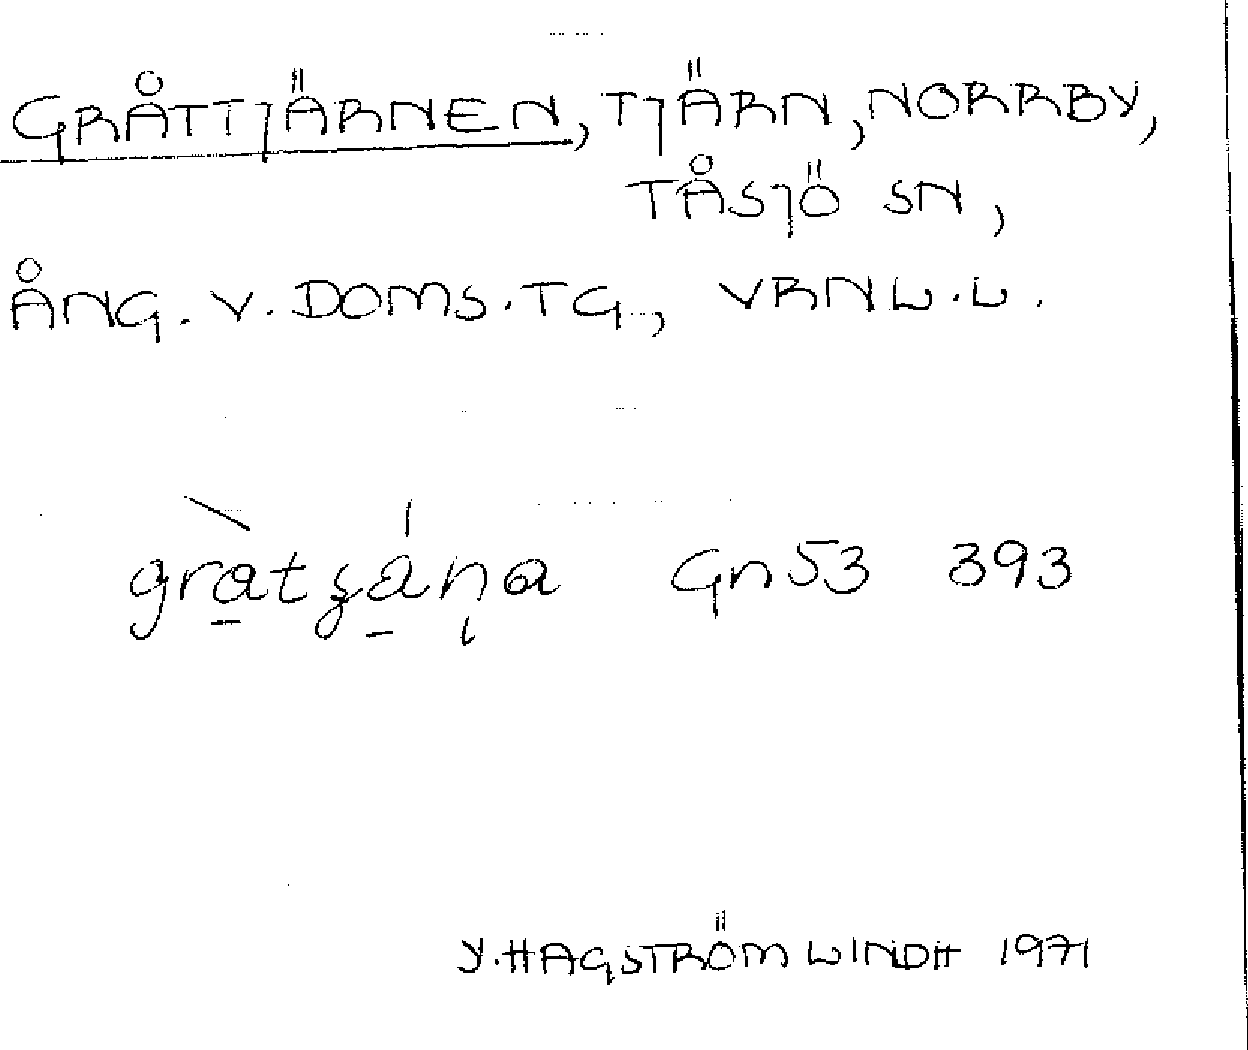 GRÅTTJÄRNEN, TJÄRN, NORRBY,
TÅSJÖ SN,
ÅNG. V. DOMS. TG., VRNL. L.
Gn 53 393
Y. HAGSTRÖM LINDH 1971